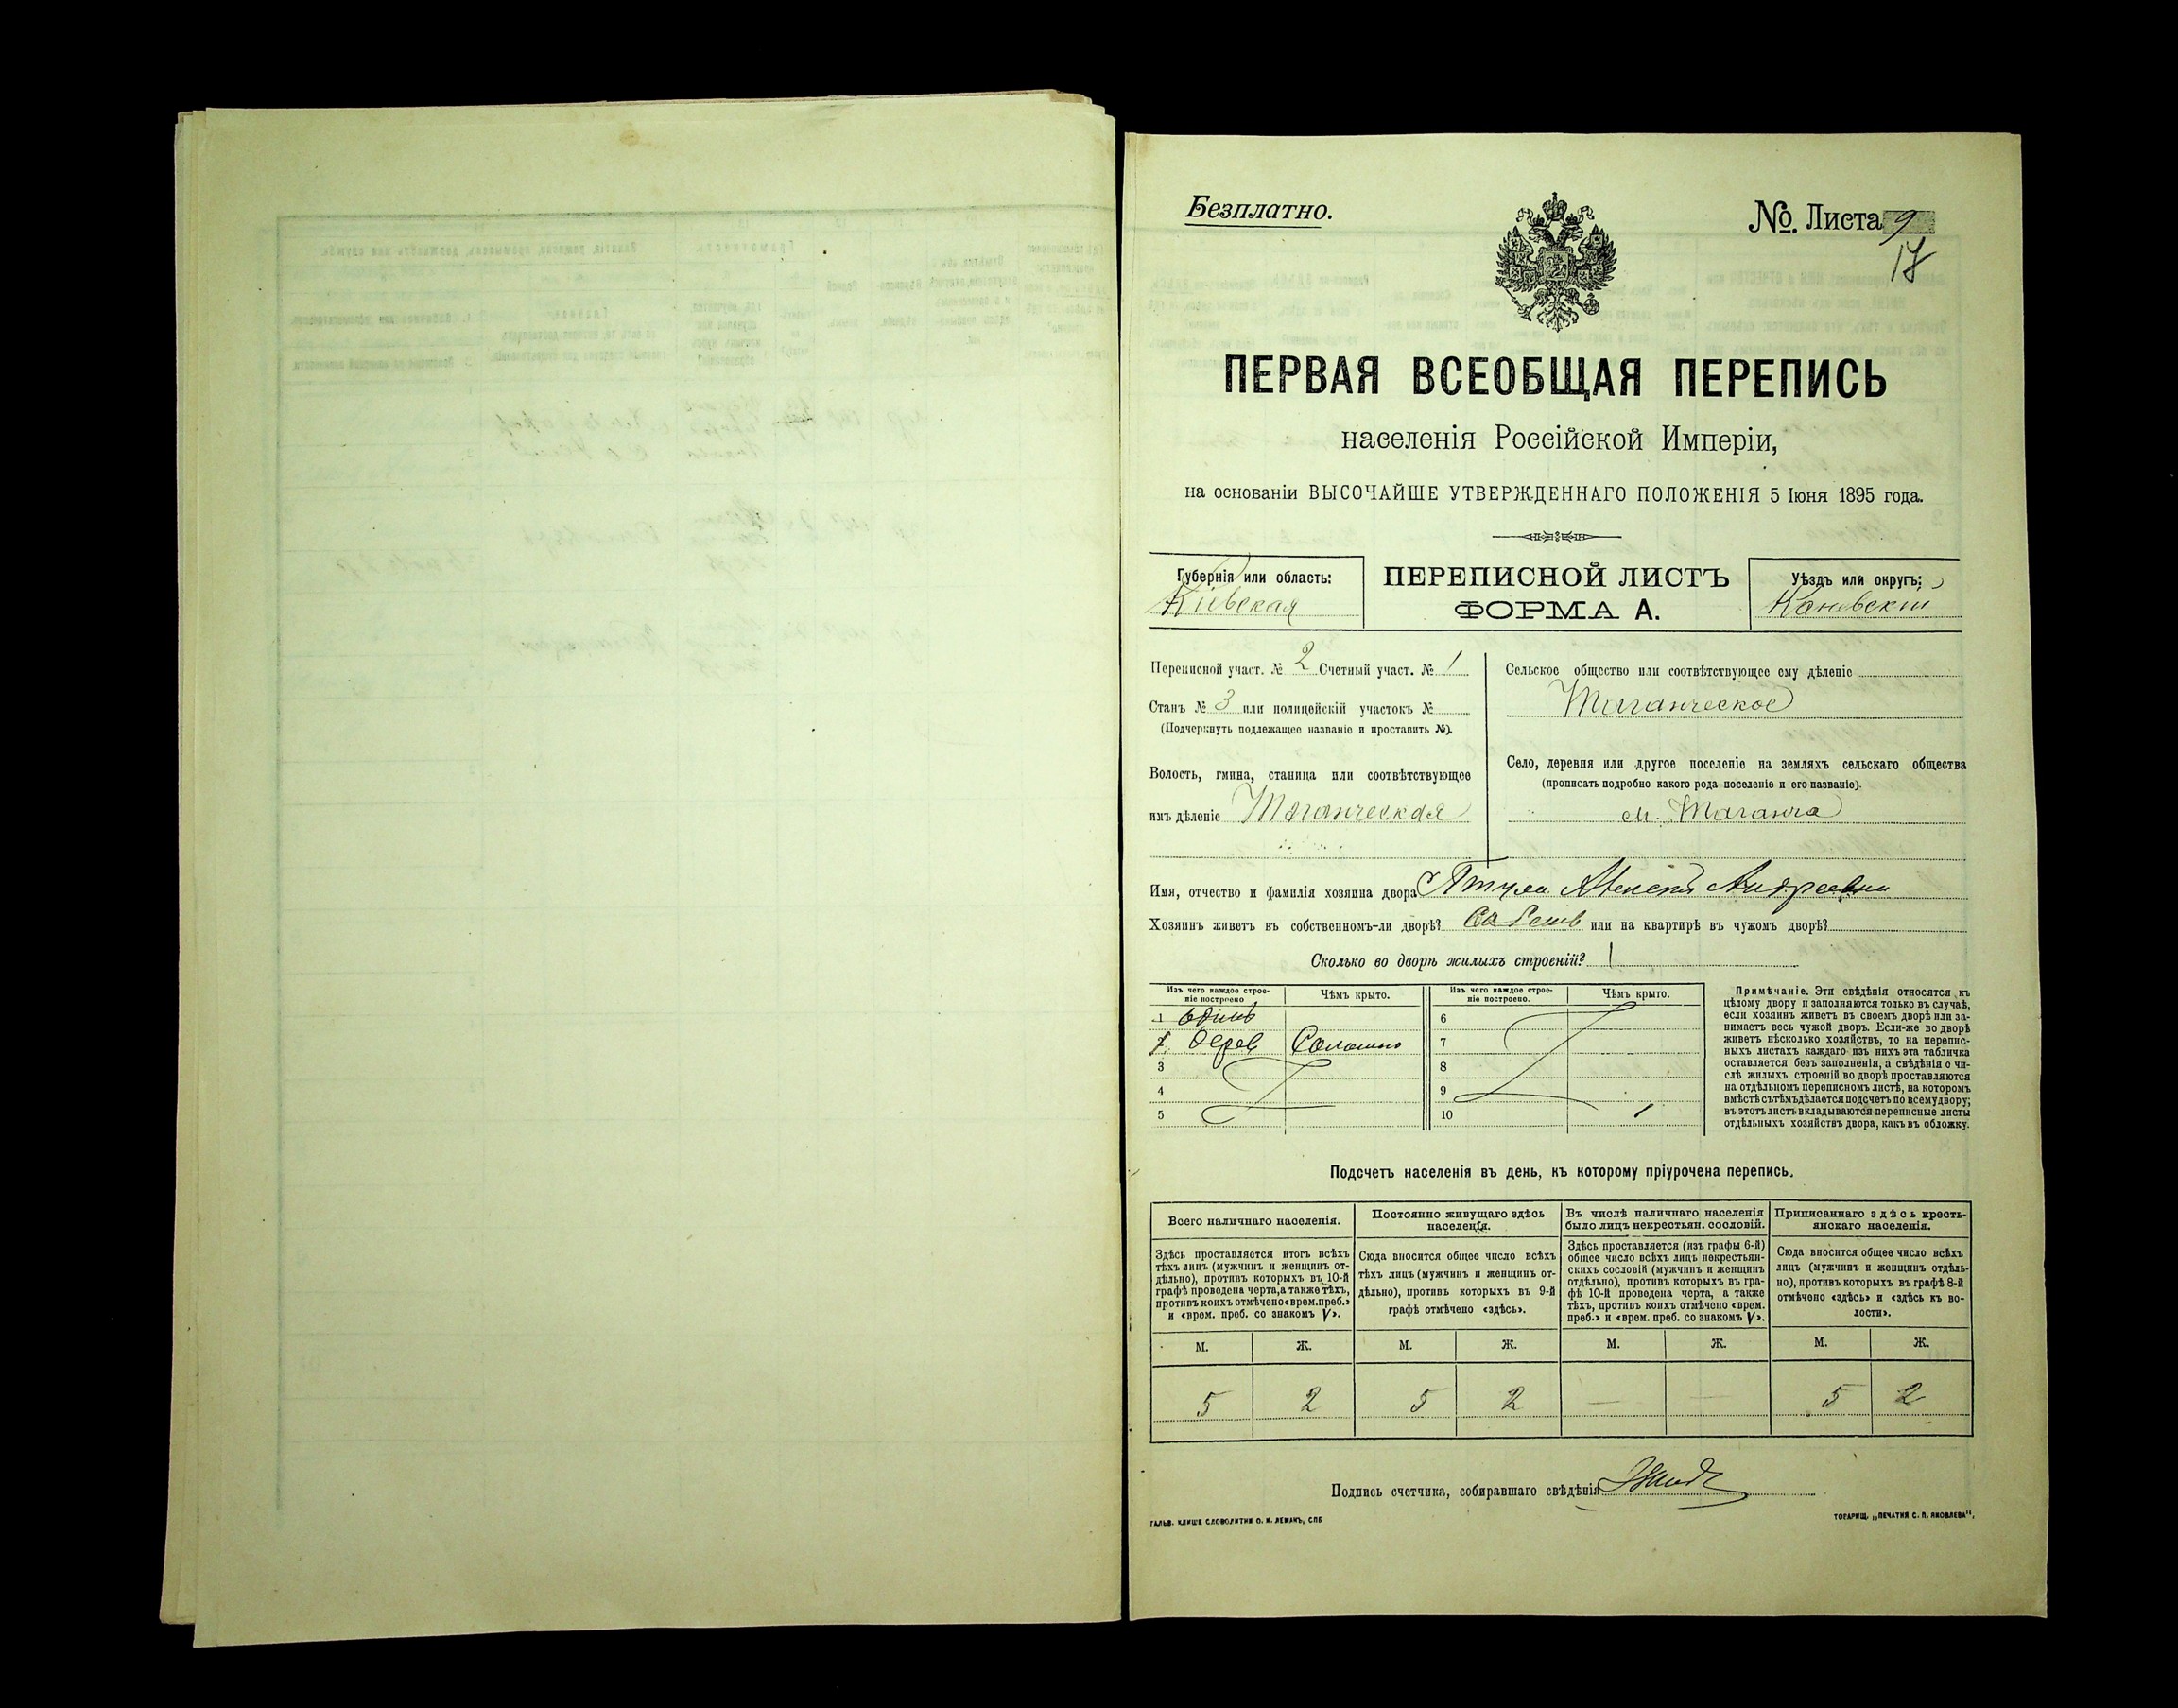 Безплатно.
№. Листа 9
17
ПЕРВАЯ ВСЕОБЩАЯ ПЕРЕПИСЬ
населенія Россійской Имперіи,
на основаніи ВЫСОЧАЙШЕ УТВЕРЖДЕННАГО ПОЛОЖЕНІЯ 5 Іюня 1895 года.
Губернія или область:
Кіевская
ПЕРЕПИСНОЙ ЛИСТЪ
ФОРМА А.
Уѣздъ или округъ:
Каневскій
Переписной участ. № 2 Счетный участ. № 1
Станъ № 3 или полицейскій участокъ №
(Подчеркнуть подлежащее названіе и проставить №).
Волость, гмина, станица или соотвѣтствующее
имъ дѣленіе Таганческая
Сельское общество или соотвѣтствующее ему дѣленіе
Таганческое
Село, деревня или другое поселеніе на земляхъ сельскаго общества
(прописать подробно какого рода поселеніе и его названіе).
м. Таганча
Имя, отчество и фамилія хозяина двора Андреевъ
Хозяинъ живетъ въ собственномъ-ли дворѣ? или на квартирѣ въ чужомъ дворѣ?
Сколько во дворѣ жилыхъ строеній? 1
Изъ чего каждое строеніе построено
Чѣмъ крыто.
Изъ чего каждое строеніе построено.
Чѣмъ крыто.
1 один
дерев Солошно
3
4
5
6
7
8
9
10
Примѣчаніе. Эти свѣдѣнія относятся къ
цѣлому двору и заполняются только въ случаѣ,
если хозяинъ живетъ въ своемъ дворѣ или за-
нимаетъ весь чужой дворъ. Если-же во дворѣ
живетъ нѣсколько хозяйствъ, то на перепис-
ныхъ листахъ каждаго изъ нихъ эта табличка
оставляется безъ заполненія, а свѣдѣнія о чи-
слѣ жилыхъ строеній во дворѣ проставляются
на отдѣльномъ переписномъ листѣ, на которомъ
вмѣстѣ съ тѣмъ дѣлается подсчетъ по всему двору;
въ этотъ листъ вкладываются переписные листы
отдѣльныхъ хозяйствъ двора, какъ въ обложку.
Подсчетъ населенія въ день, къ которому пріурочена перепись.
Всего наличнаго населенія.
Здѣсь проставляется итогъ всѣхъ
тѣхъ лицъ (мужчинъ и женщинъ от-
дѣльно), противъ которыхъ въ 10-й
графѣ проведена черта, а также тѣхъ,
противъ коихъ отмѣчено «врем. преб.»
и «врем. преб. со знакомъ V».
Постоянно живущаго здѣсь
населенія.
Сюда вносится общее число всѣхъ
тѣхъ лицъ (мужчинъ и женщинъ от-
дѣльно), противъ которыхъ въ 9-й
графѣ отмѣчено «здѣсь».
Въ числѣ наличнаго населенія
было лицъ некрестьян. сословій.
Здѣсь проставляется (изъ графы 6-й)
общее число всѣхъ лицъ некрестьян-
скихъ сословій (мужчинъ и женщинъ
отдѣльно), противъ которыхъ въ гра-
фѣ 10-й проведена черта, а также
тѣхъ, противъ коихъ отмѣчено «врем.
преб.» и «врем. преб. со знакомъ V».
Приписаннаго здѣсь кресть-
янскаго населенія.
Сюда вносится общее число всѣхъ
лицъ (мужчинъ и женщинъ отдѣль-
но), противъ которыхъ въ графѣ 8-й
отмѣчено «здѣсь» и «здѣсь къ во-
лости».
М. Ж. М. Ж. М. Ж. М. Ж.
5 2 5 2 — — 5 2
Подпись счетчика, собиравшаго свѣдѣнія
ГАЛЬВ. КЛИШЕ СЛОВОЛИТНИ О. И. ЛЕМАНЪ, СПБ
ТОВАРИЩ. „ПЕЧАТНЯ С. П. ЯКОВЛЕВА“.